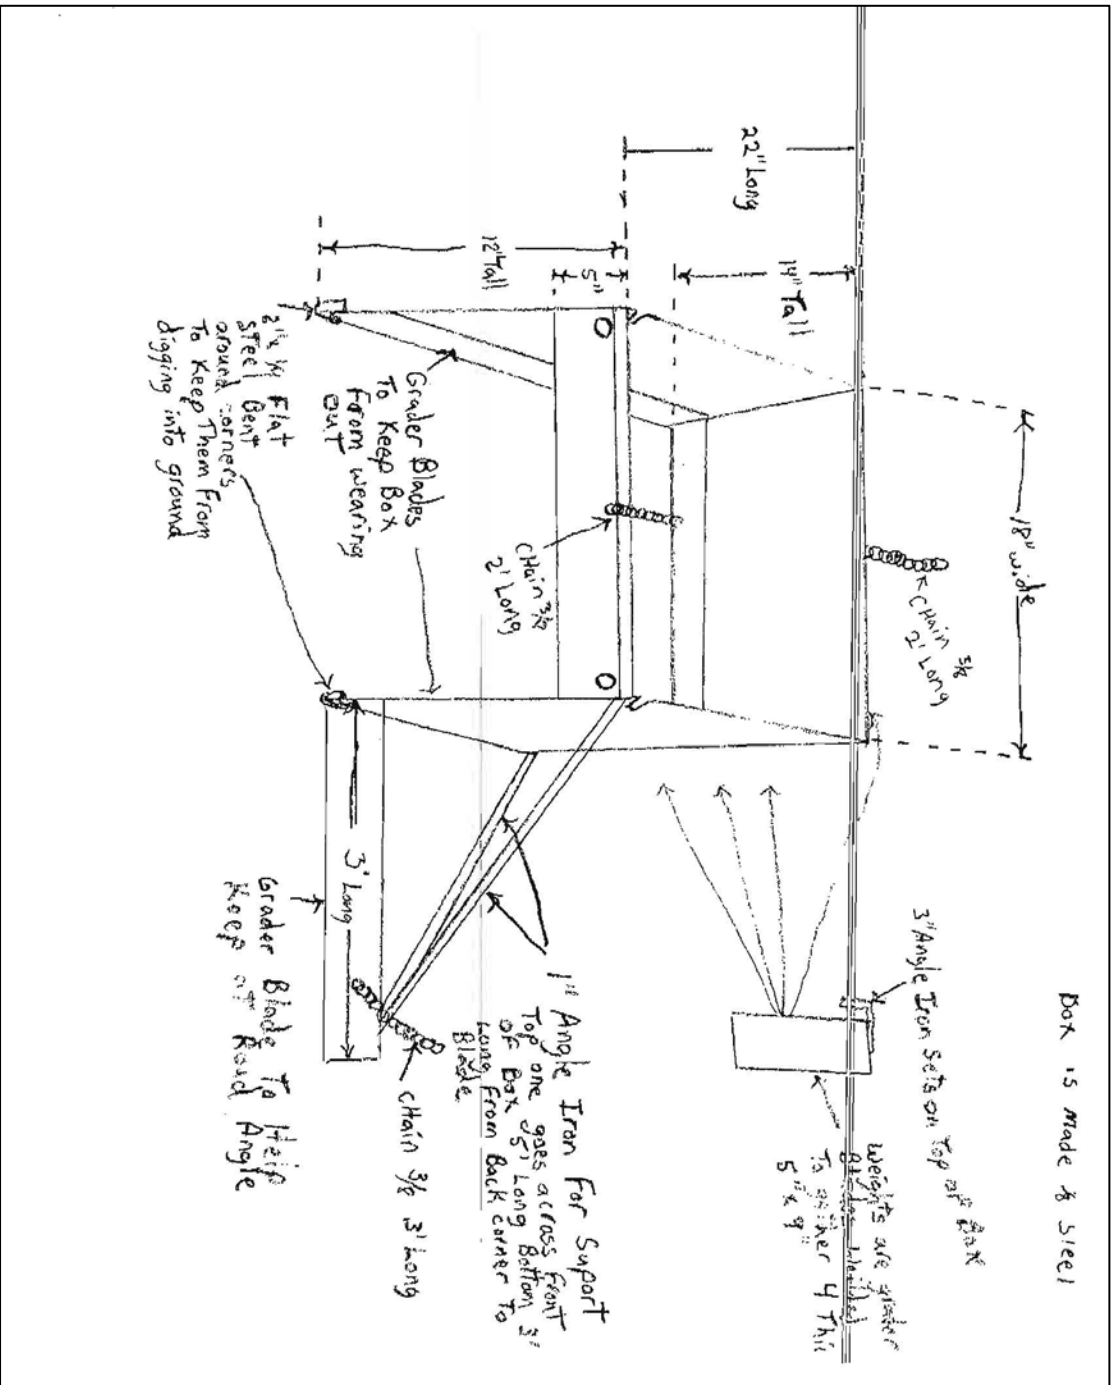 Box is Made ⅜ Steel
3" Angle Iron Sets on Top of Box
Weights are grader
Blades Welded
Together 4 Thic
5" x 9"
18" wide
CHain ⅜
2' Long
22" Long
14" Tall
12" Tall
5"
CHain ⅜
2' Long
Grader Blades
To Keep Box
From wearing
out
Flat
Steel Bent
around corners
To Keep Them From
digging into ground
1" Angle Iron For Suport
Top one goes across Front
of Box 5' Long Bottom 3'
Long From Back corner To
Blade
CHain ⅜ 3' Long
3' Long
Grader Blade To Help
Keep at Road Angle